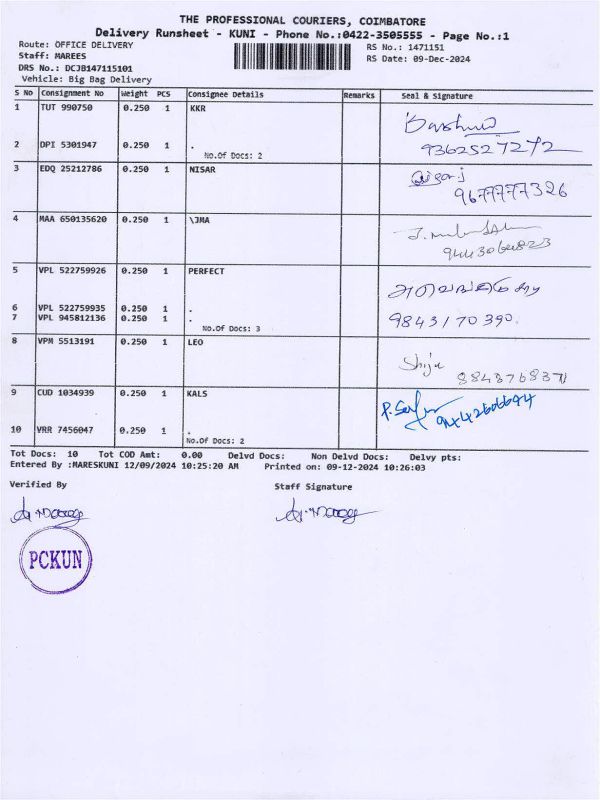 THE PROFESSIONAL COURIERS, COIMBATORE
Delivery Runsheet - KUNI - Phone No.:0422-3505555 - Page No.:1
Route: OFFICE DELIVERY RS No.: 1471151
Staff: MAREES RS Date: 09-Dec-2024
DRS No.: DCJB147115101
Vehicle: Big Bag Delivery
S No Consignment No Weight PCS Consignee Details Remarks Seal & Signature
1 TUT 990750 0.250 1 KKR
2 DPI 5301947 0.250 1 . 9362527272
No.Of Docs: 2
3 EDQ 25212786 0.250 1 NISAR
9677777326
4 MAA 650135620 0.250 1 \JMA
9443064823
5 VPL 522759926 0.250 1 PERFECT
6 VPL 522759935 0.250 1 .
7 VPL 945812136 0.250 1 . 9843170390.
No.Of Docs: 3
8 VPM 5513191 0.250 1 LEO
Shija
9843768371
9 CUD 1034939 0.250 1 KALS
9442606694
10 VRR 7456047 0.250 1 .
No.Of Docs: 2
Tot Docs: 10 Tot COD Amt: 0.00 Delvd Docs: Non Delvd Docs: Delvy pts:
Entered By :MARESKUNI 12/09/2024 10:25:20 AM Printed on: 09-12-2024 10:26:03
Verified By Staff Signature
PCKUN